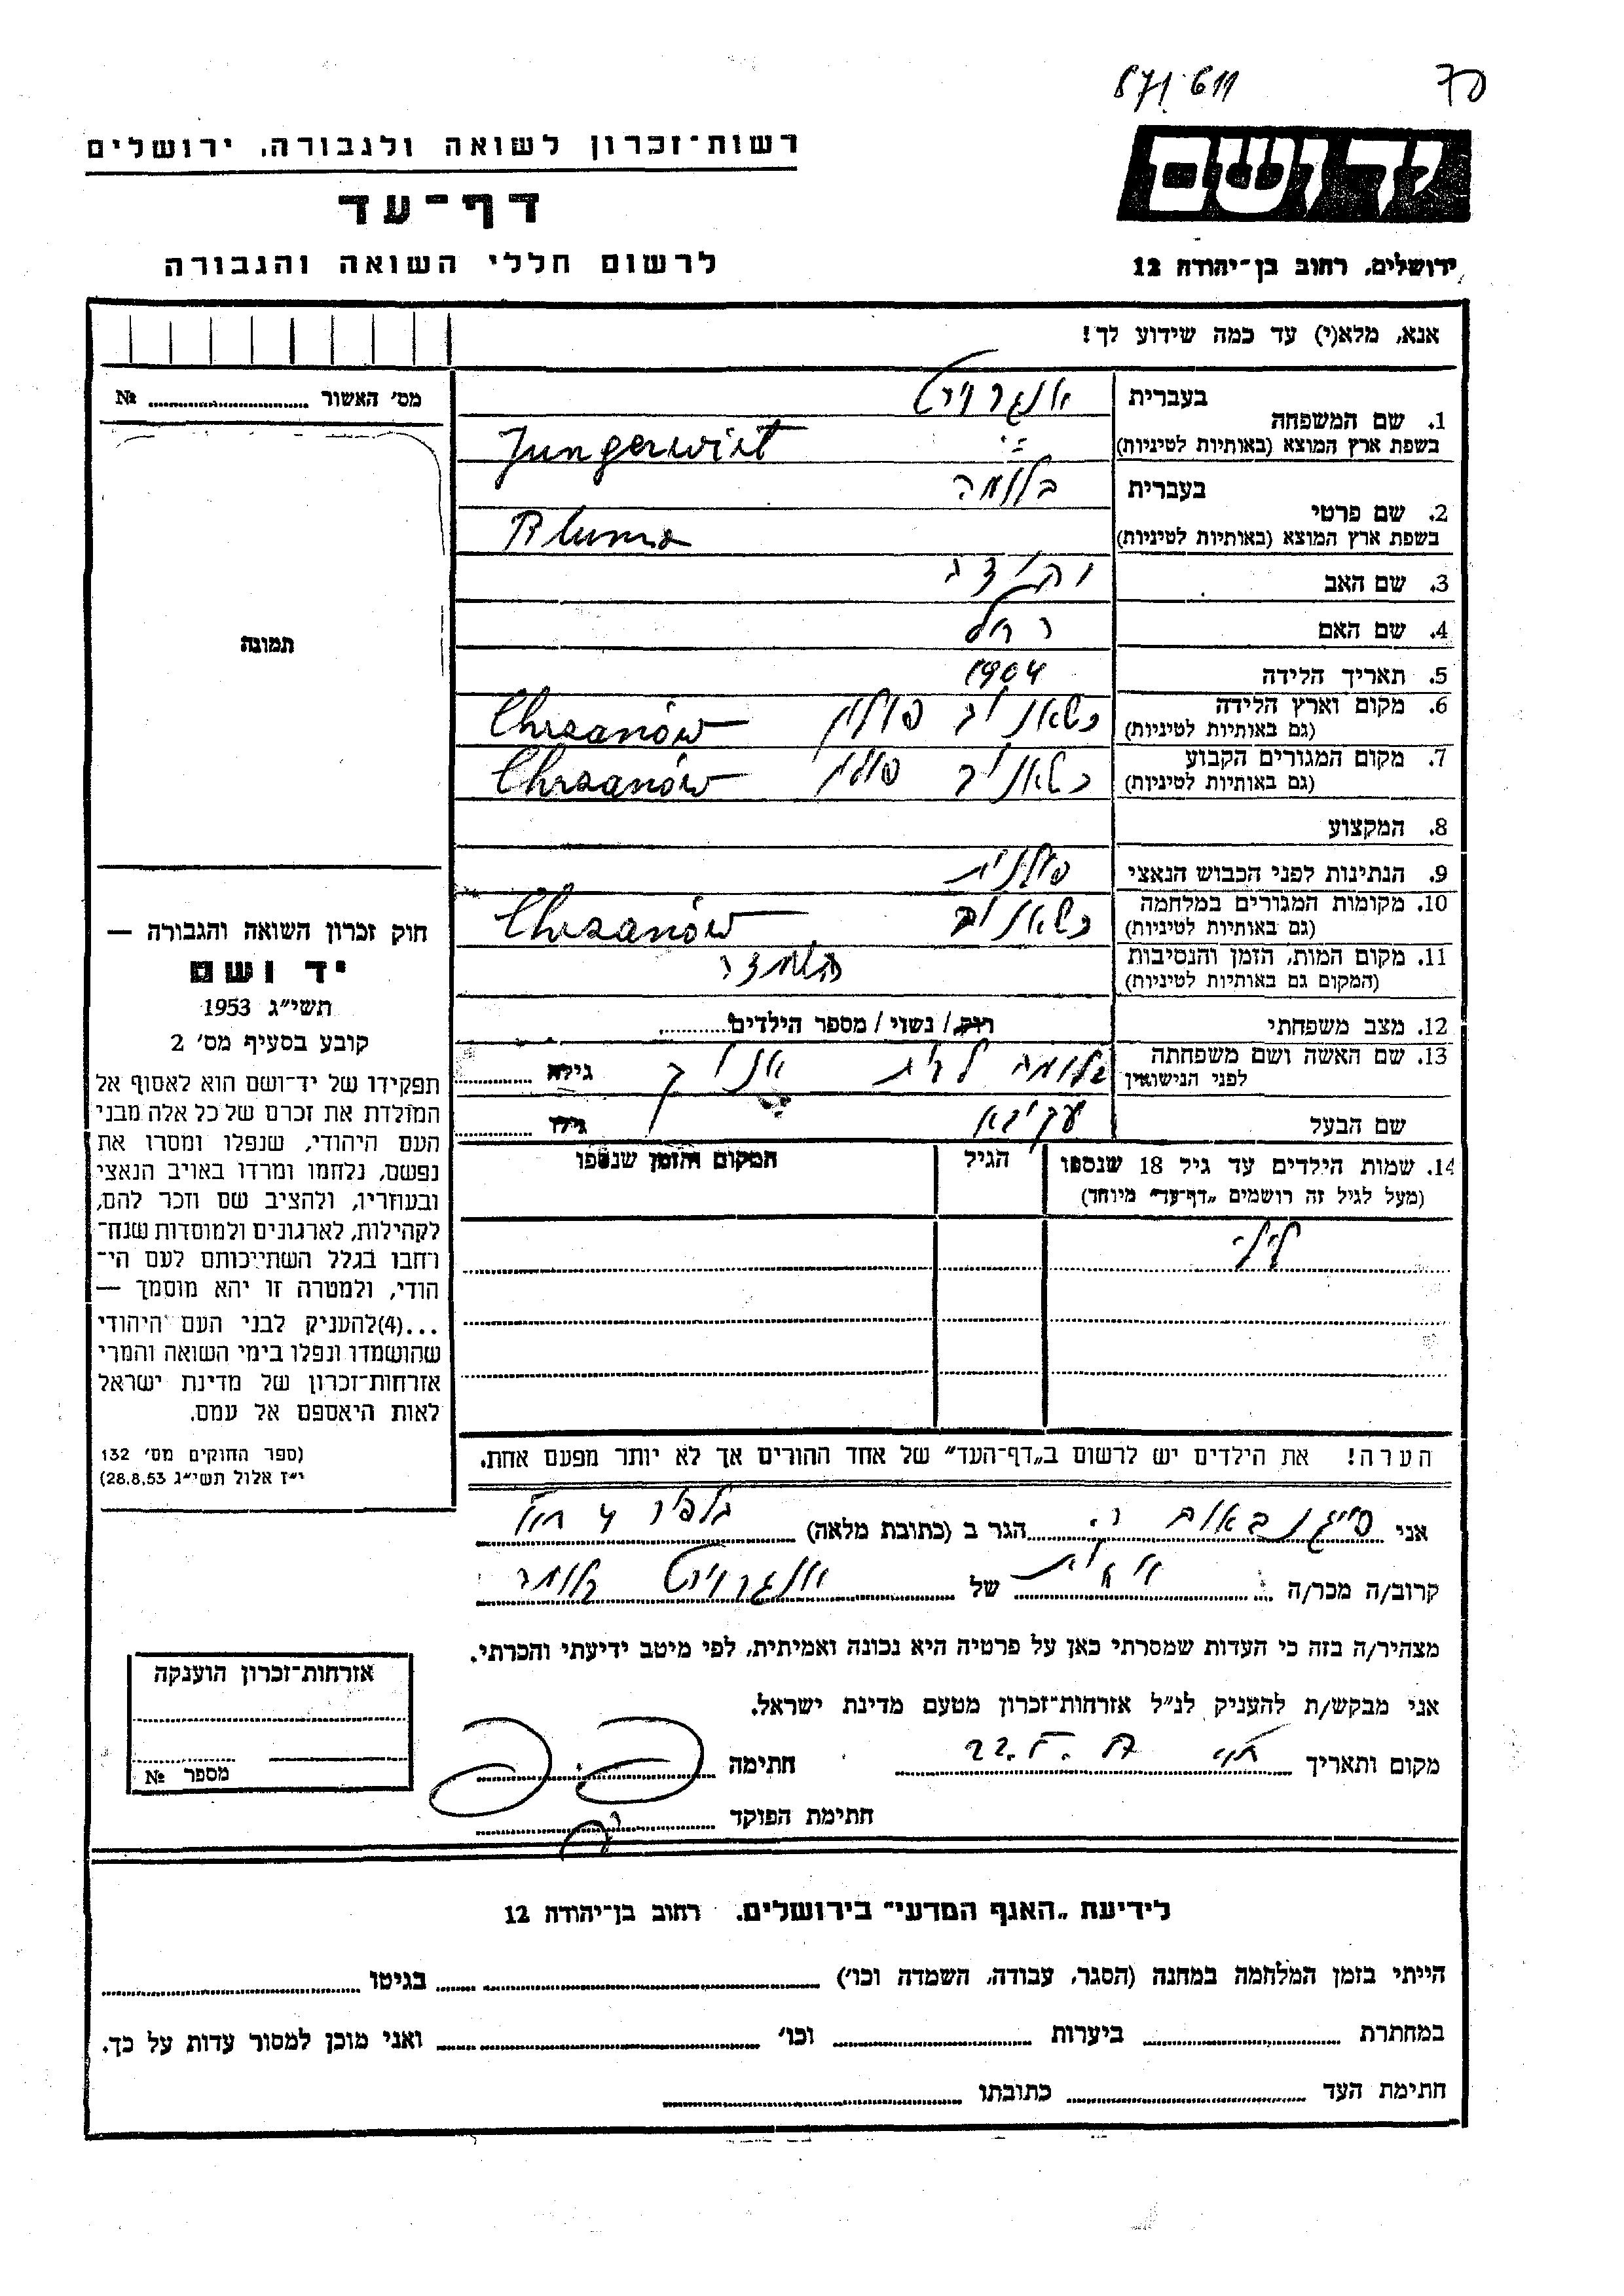 70
רשות־זכרון לשואה ולגבורה, ירושלים
דף־עד
לרשום חללי השואה והגבורה
יד ושם
ירושלים, רחוב בן־יהודה 12
אנא, מלא(י) עד כמה שידוע לך!
מס' האשור № 
1. שם המשפחה
בעברית אנגרוירט
בשפת ארץ המוצא (באותיות לטיניות) Jungerwirt
2. שם פרטי
בעברית בלומה
בשפת ארץ המוצא (באותיות לטיניות) Bluma
3. שם האב
4. שם האם רחל
5. תאריך הלידה 1904
6. מקום וארץ הלידה (גם באותיות לטיניות) כשאנוב פולין Chrzanów
7. מקום המגורים הקבוע (גם באותיות לטיניות) כשאנוב פולין Chrzanów
8. המקצוע
9. הנתינות לפני הכבוש הנאצי פולנית
10. מקומות המגורים במלחמה (גם באותיות לטיניות) כשאנוב Chrzanów
11. מקום המות, הזמן והנסיבות
(המקום גם באותיות לטיניות)
12. מצב משפחתי רווק / נשוי / מספר הילדים
13. שם האשה ושם משפחתה
לפני הנישואין בלומה לבית גילה
שם הבעל עקיבא גילו
14. שמות הילדים עד גיל 18 שנספו
(מעל לגיל זה רושמים „דף־עד" מיוחד)
הגיל
המקום והזמן שנספו
תמונה
חוק זכרון השואה והגבורה —
יד ושם
תשי"ג 1953
קובע בסעיף מס' 2
תפקידו של יד־ושם הוא לאסוף אל
המולדת את זכרם של כל אלה מבני
העם היהודי, שנפלו ומסרו את
נפשם, נלחמו ומרדו באויב הנאצי
ובעוזריו, ולהציב שם וזכר להם,
לקהילות, לארגונים ולמוסדות שנח־
רחבו בגלל השתייכותם לעם הי־
הודי, ולמטרה זו יהא מוסמך —
...(4)להעניק לבני העם היהודי
שהושמדו ונפלו בימי השואה והמרי
אזרחות־זכרון של מדינת ישראל
לאות היאספם אל עמם.
(ספר החוקים מס' 132
י"ז אלול תשי"ג 28.8.53)
הערה! את הילדים יש לרשום ב„דף־העד" של אחד ההורים אך לא יותר מפעם אחת.
אני פייגנבאום ר. הגר ב (כתובת מלאה)
קרוב/ה מכר/ה של אנגרוירט בלומה
מצהיר/ה בזה כי העדות שמסרתי כאן על פרטיה היא נכונה ואמיתית, לפי מיטב ידיעתי והכרתי.
אני מבקש/ת להעניק לנ"ל אזרחות־זכרון מטעם מדינת ישראל.
מקום ותאריך חתימה
חתימת הפוקד
אזרחות־זכרון הוענקה
מספר №
לידיעת „האגף המדעי" בירושלים, רחוב בן־יהודה 12
הייתי בזמן המלחמה במחנה (הסגר, עבודה, השמדה וכו') בגיטו
במחתרת ביערות וכו' ואני מוכן למסור עדות על כך.
חתימת העד כתובתו